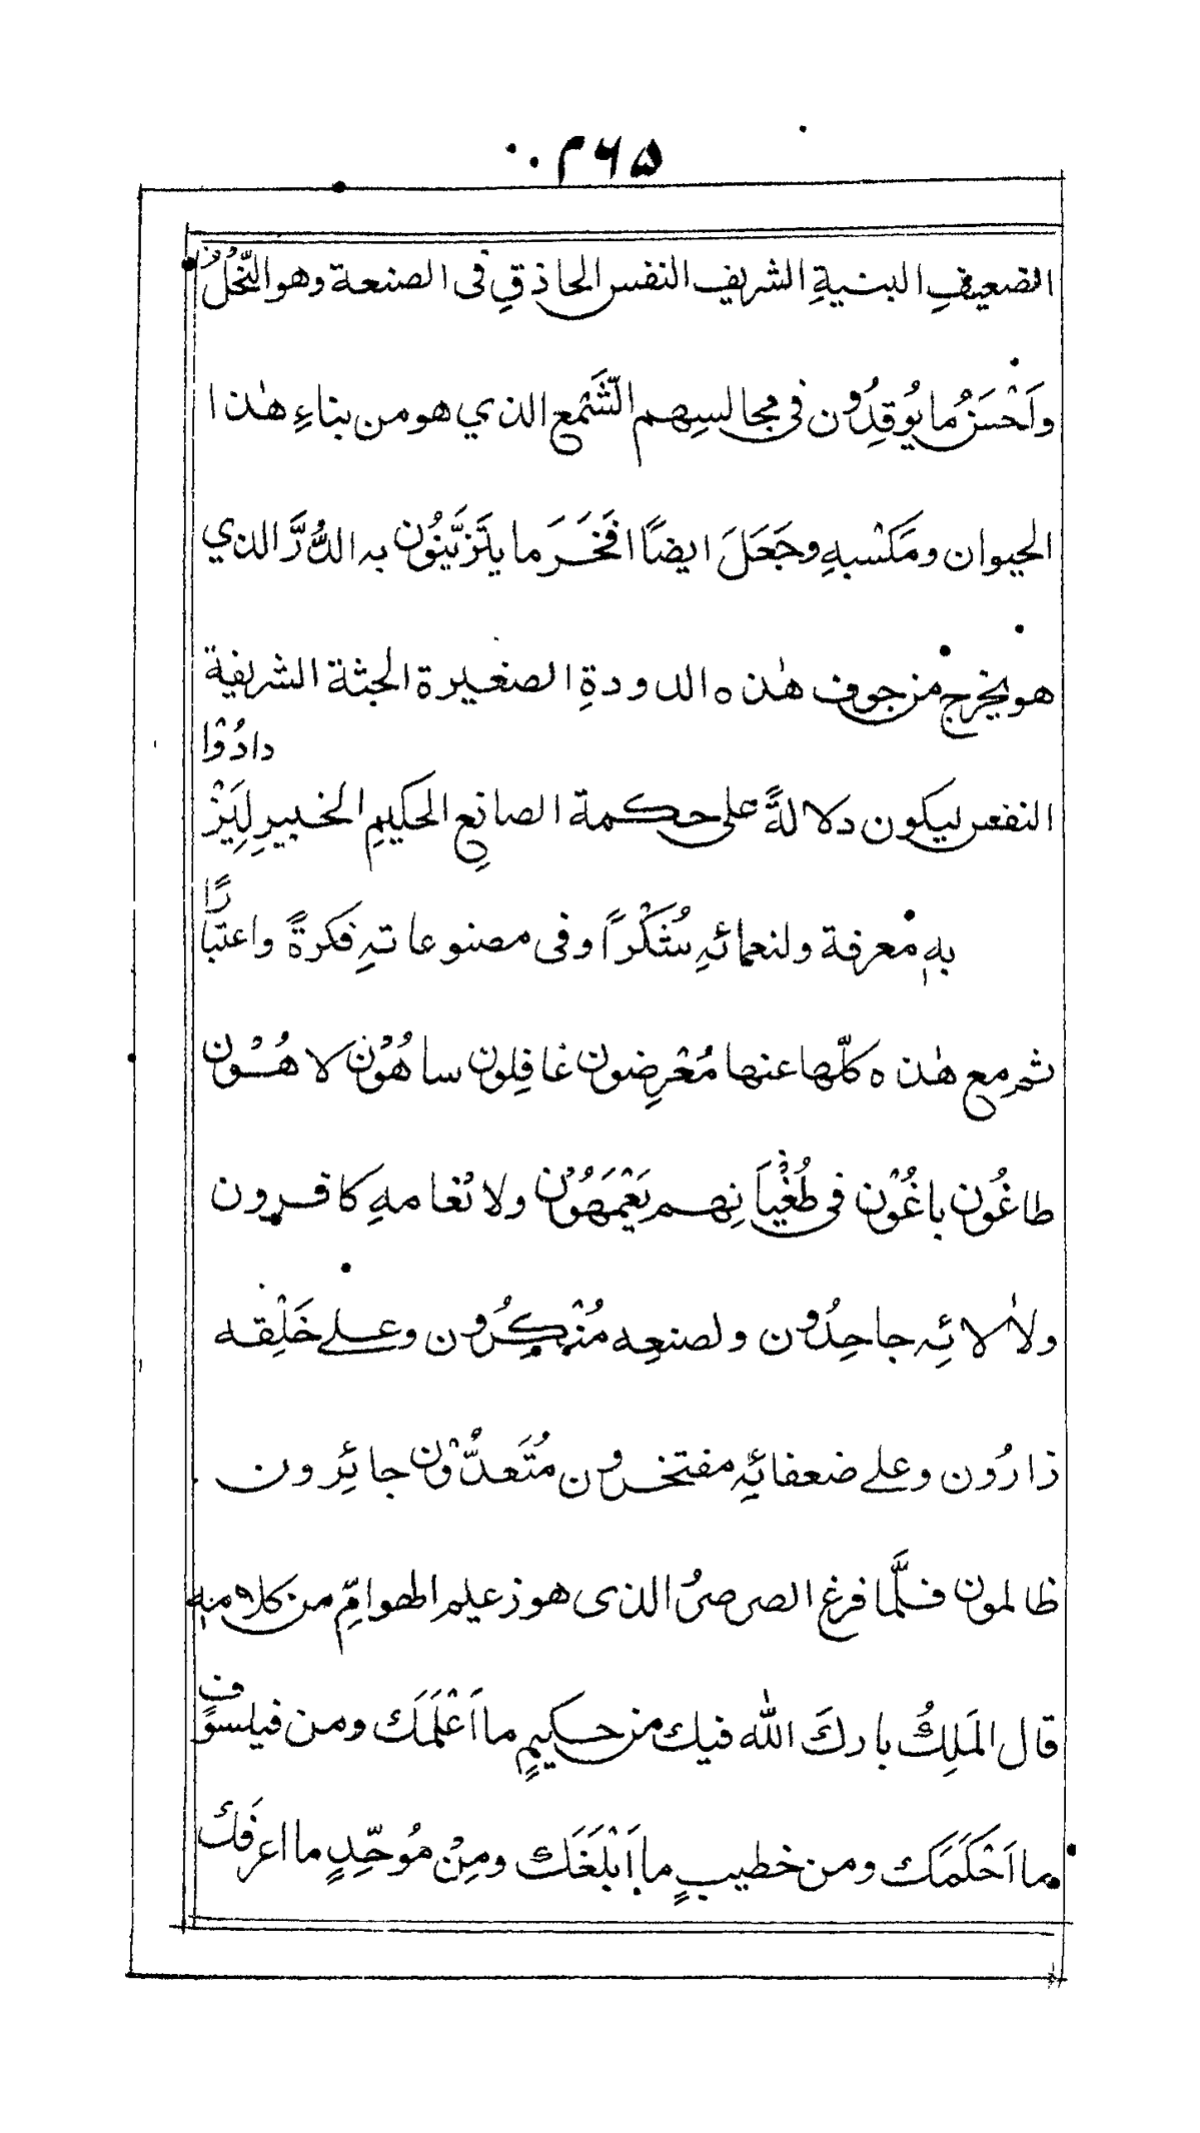 ۳۶۵
الضعيفِ البنيةِ الشريفِ النفس الحاذقِ فى الصنعة وهو النَّحْلُ
وَاَحْسَنُ ما يُوقِدُون فى مجالسِهم الشَّمْع الذي هو من بناءِ هٰذا
الحيوان ومَكْسَبهِ وجَعَلَ ايضًا اَفْخَرَ ما يَتَزَيَّنُون به الدُّرَّ الذي
هو يخرج من جوف هٰذه الدودةِ الصغيرة الجثة الشريفة
النفس ليكون دلالةً على حكمة الصانِعِ الحكيمِ الخبيرِ لِيَزْدادُوْا
بهٖ معرفة ولنعمائهِ شُكْرًا وفى مصنوعاتهِ فكرةً واعتبارًا
ثم مع هٰذه كلّها عنها مُعْرِضون غافِلون ساهُوْن لاهُوْن
طاغُون باغُوْن فى طُغْيَانِهم يَعْمَهُوْن ولانْعامهِ كافرون
ولاٰلائِه جاحِدُون ولصنعِه مُنْكِرُون وعلى خَلْقِه
زارُون وعلى ضعفائِهِ مفتخرون مُتَعدُّوْن جائِرون
ظالمون فلَّما فرغ الصرصرُ الذى هو زعيم الهوامِّ من كلامهٖ
قال المَلِكُ باركَ الله فيك من حكيمٍ ما اَعْلَمَك ومن فيلسوفٍ
ما اَحْكَمَك ومن خطيبٍ ما اَبْلَغَك ومِنْ مُوحِّدٍ ما اعرفَك